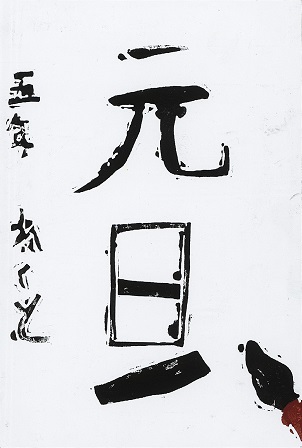 元旦
五年